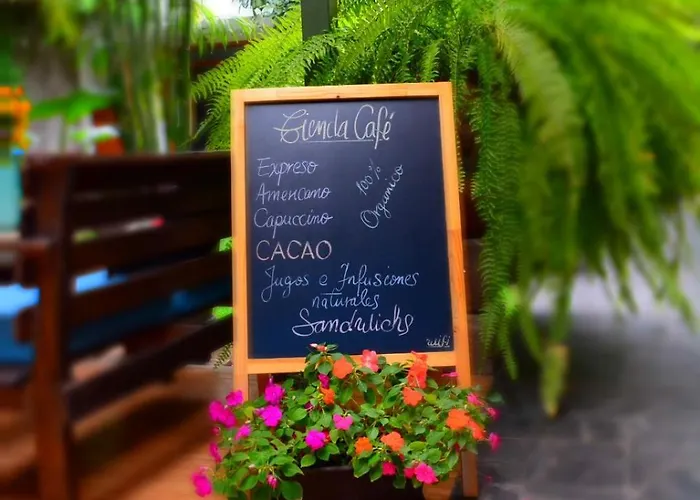 Tienda Café
Expreso
Americano
Capuccino
100%
Orgánico
CACAO
Jugos e Infusiones
naturales
Sandwichs